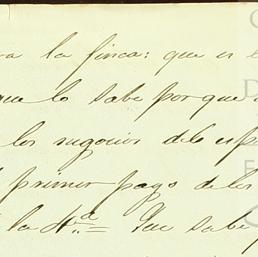 la finca: que es
que lo sabe por que
los negocios del esp
primer pago de los
la H.ª = Que sabe